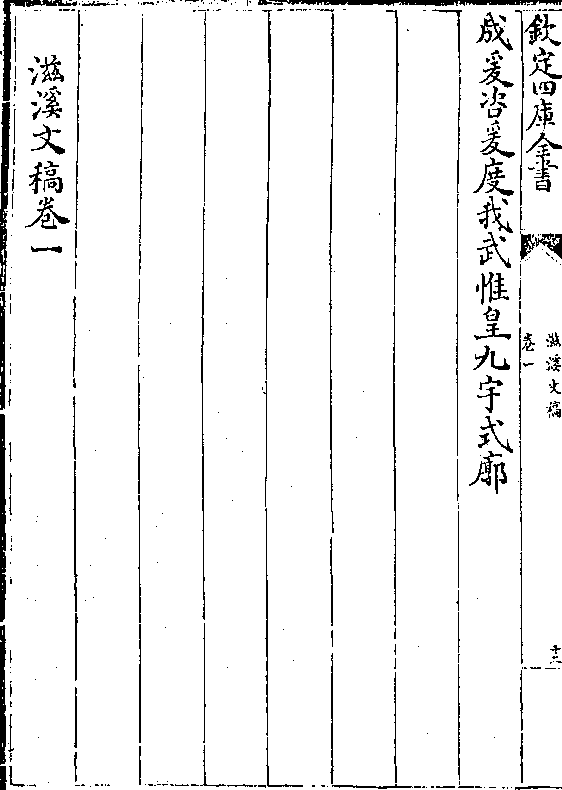 欽定四庫全書
滋溪文稿
卷一
十二
成爰咨爰度我武惟皇九宇式廓
滋溪文稿卷一